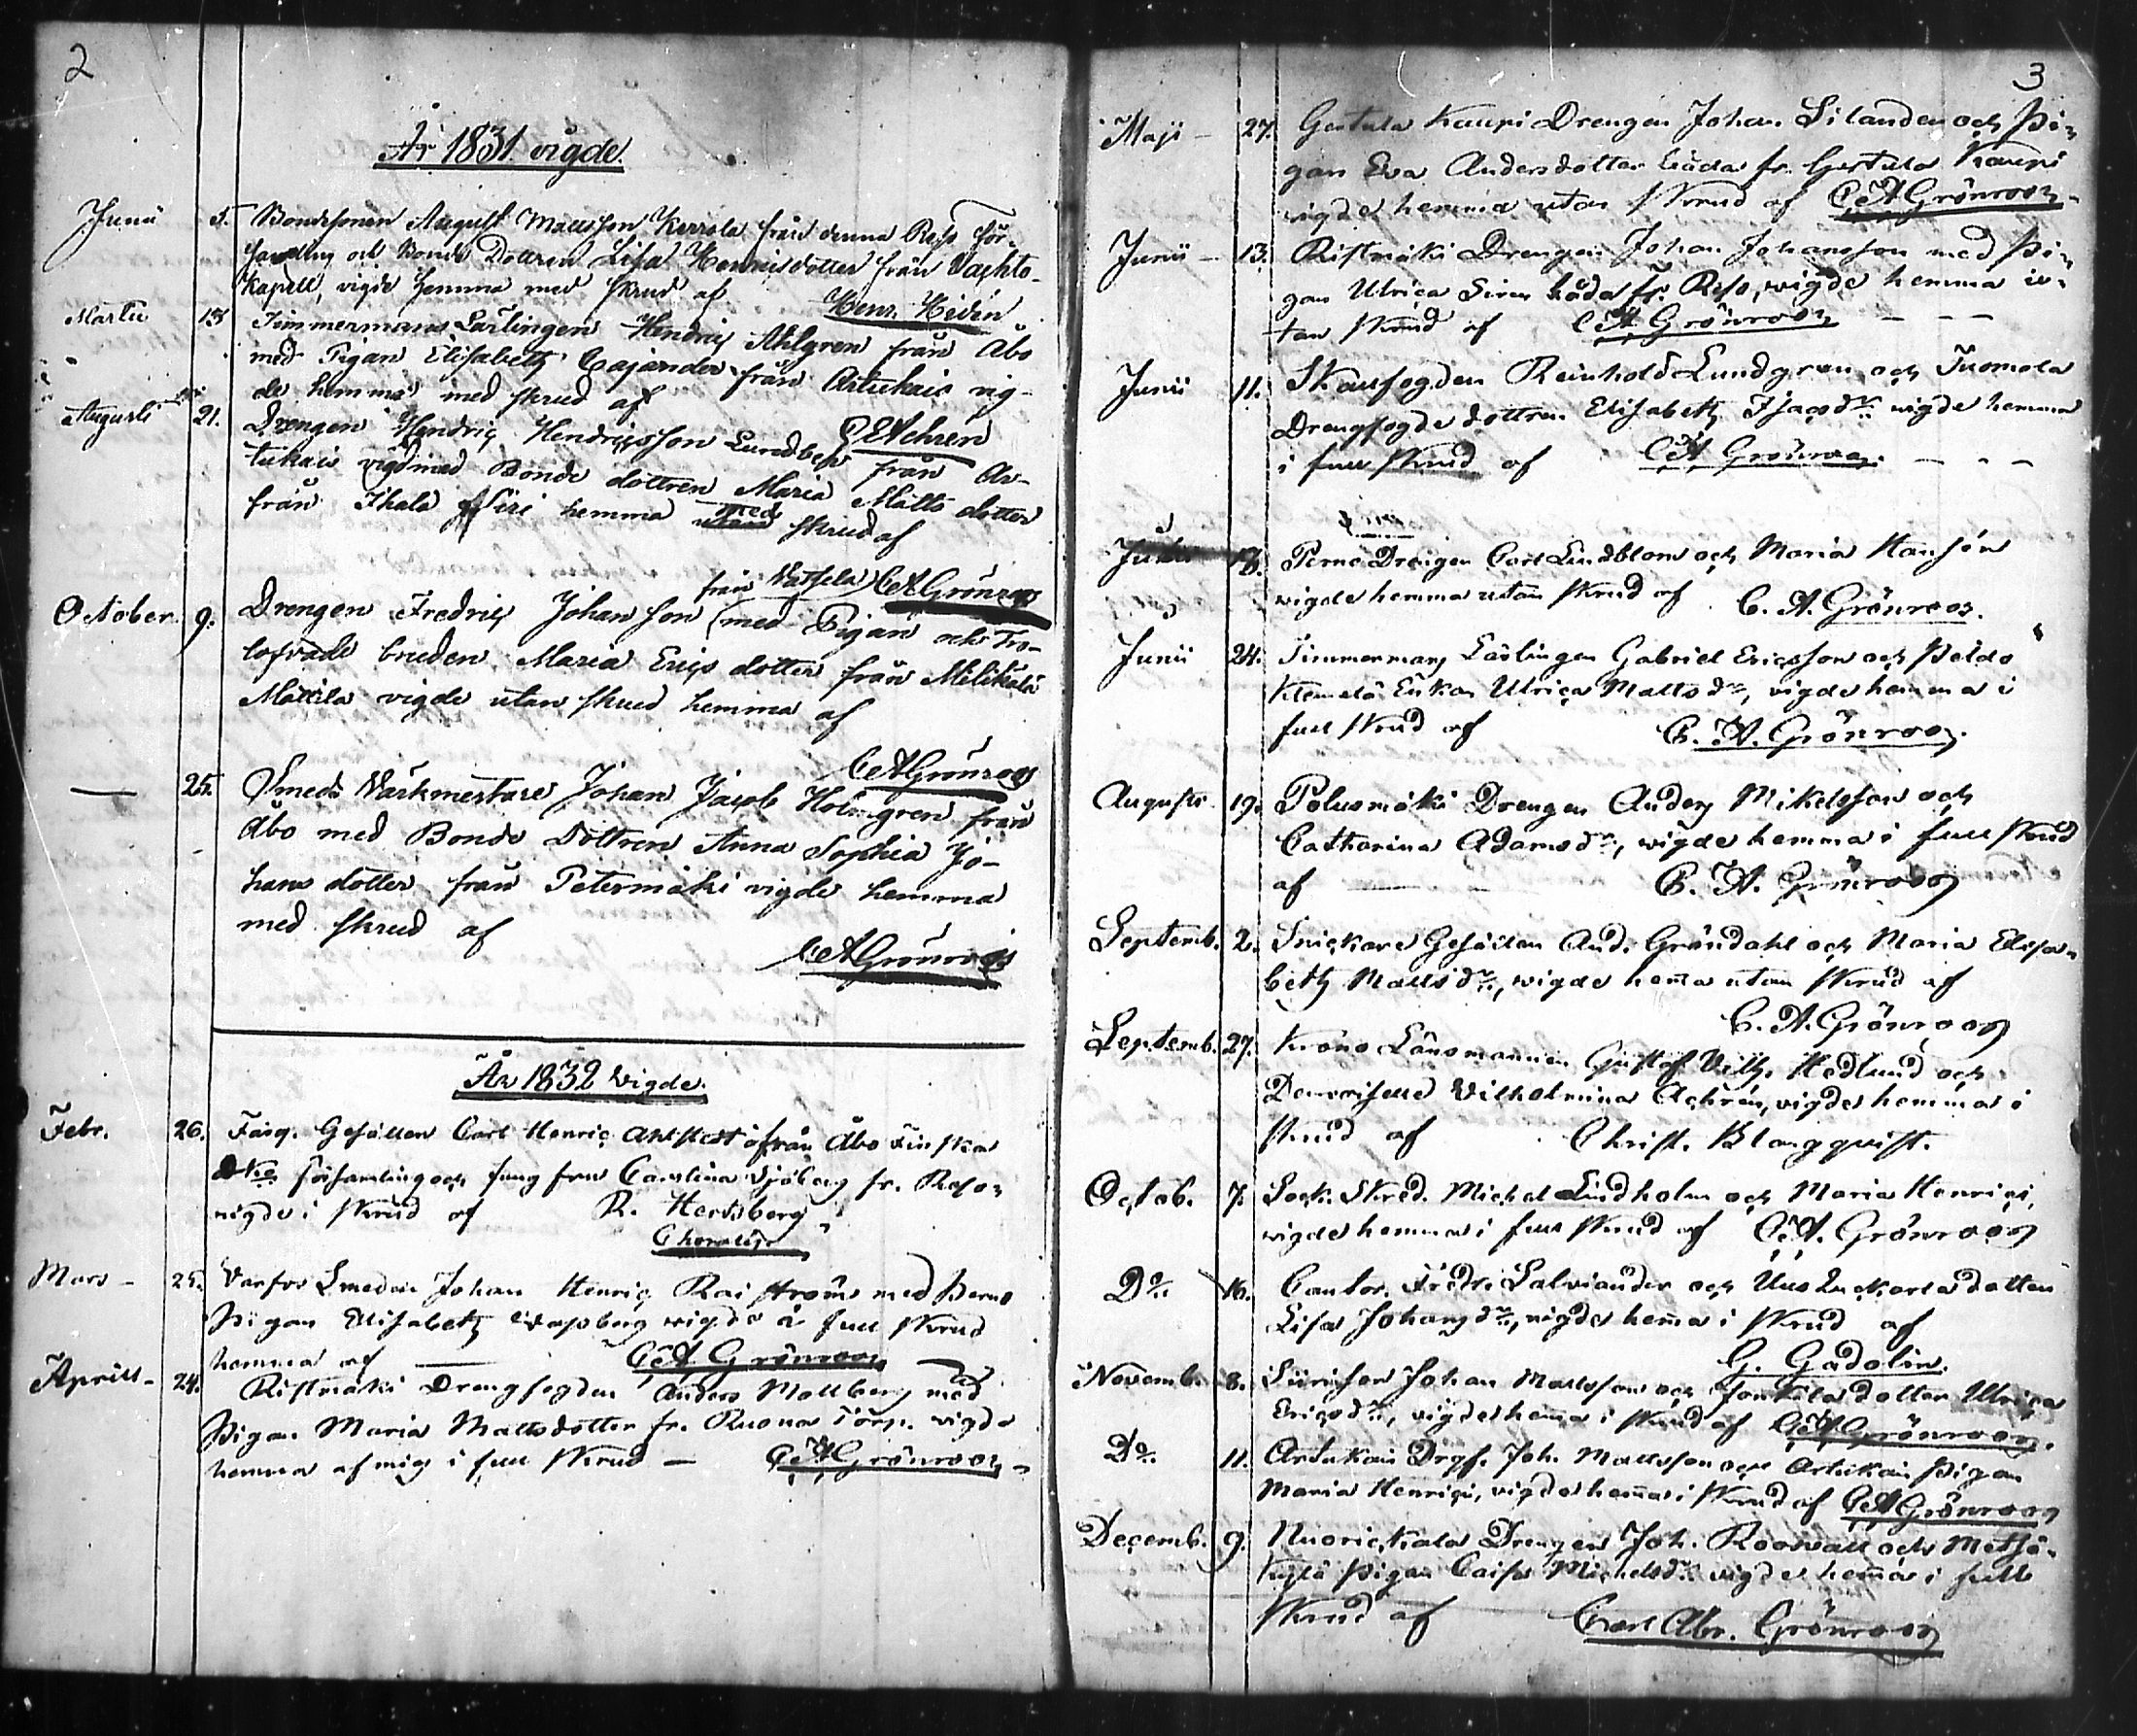 2
År 1831 vigde.
Junii 5. Bondesonen August Mattsson Kerrola från denna Reso för-
samling och Bonde Dottren Lisa Henricsdotter från Vachto
Kapell, vigde hemma med skrud af Henr. Hedén
Martii 13 Timmermans Lärlingen Hendric Ahlgren från Åbo
med Pigan Elisabeth Cajander från Artukais vig-
de hemma med skrud af
Augusti 21. Drengen Hendric Hendricsson Lundberg från Ar-
tukais vigd med Bonde dottren Maria Matts dotter
från Ihala hemma med skrud af
från Vatsela CAGrönroos
October 9. Drengen Fredric Johansson med Pigan och Tro-
lofvade bruden Maria Erics dotter från Mälikälä
Mattila vigde utan skrud hemma af
CAGrönroos
— 25. Smeds Värkmestare Johan Jacob Holmgren från
Åbo med Bonde Dottren Anna Sophia Jo-
hans dotter från Petermäki vigde hemma
med skrud af
CAGrönroos
År 1832 Vigde.
Febr. 26. Färg. Gesällen Carl Henric från Åbo Finska
församling och Jungfrun Carolina Sjöberg fr. Reso
vigde i skrud af R. Hertzberg
Mars – 25. Smeden Johan Henric Raiström med Perno
Pigan Elisabeth vigde i full skrud
hemma af — CA Grönroos
Aprill – 24. Ristmäki Drengfogden Anders Mallberg med
Pigan Maria Mattsdotter fr. Ruona Torp. vigde
hemma af mig i full skrud — CAGrönroos
3
Maji – 27. Gertula Kaupi Drengen Johan Silander och Pi-
gan Eva Andersdotter båda fr. Gertula Kaupi
vigde hemma utan skrud af CAGrönroos
Junii – 13. Ristmäki Drengen Johan Johansson med Pi-
gan Ulrica Siren båda fr. Reso, vigde hemma u-
tan skrud af CA Grönroos – – –
Junii 11. Skaufogden Reinhold Lundgren och Tuomola
Drengfogde dottren Elisabeth Isacsdr vigde hemma
i full skrud af CA Grönroos. – – –
Perno Drengen Carl Lindblom och Maria Hansén
vigde hemma utan skrud af C. A. Grönroos.
Junii 24. Timmermans Lärlingen Gabriel Ericsson och Peldo
Klemelä Enkan Ulrica Mattsdr, vigde hemma i
full skrud af C. A. Grönroos.
Augusti 19. Polusmäki Drengen Anders Mikelsson och
Catharina Adamsdr, vigde hemma i full skrud
af — C. A. Grönroos
Septemb. 2. Snickare Gesällen And. Gröndahl och Maria Elisa-
beth Mattsdr, vigde hema utan skrud af
C. A. Grönroos
Septemb. 27. Krono Länsmannen Gustaf Vilh. Hedlund och
Demoiselle Vilhelmina Achrén, vigde hemma i
skrud af Christ. Blomqvist.
Octob. 7. Sock. Skred. Michel Lindholm och Maria Henrici,
vigde hemma i full skrud af C. A. Grönroos
Do 16. Cantor. Fredr. Salviander och dotten
Lisa Johansdr, vigde hema i skrud af
G. Gadolin.
Novemb. 8. Johan Mattsson och dotter Ulrica
Ericsdr, vigde hema i skrud af CAGrönroos.
Do 11. Artukais Drgf. Joh. Mattsson och Artukais Pigan
Maria Henrici, vigde hema i skrud af CAGrönroos
Decemb. 9. Nuorickala Drengen Joh. Roosvall och Metsä-
kylä Pigan Caisa Michelsdr vigde hema i full
skrud af Carl Abr. Grönroos